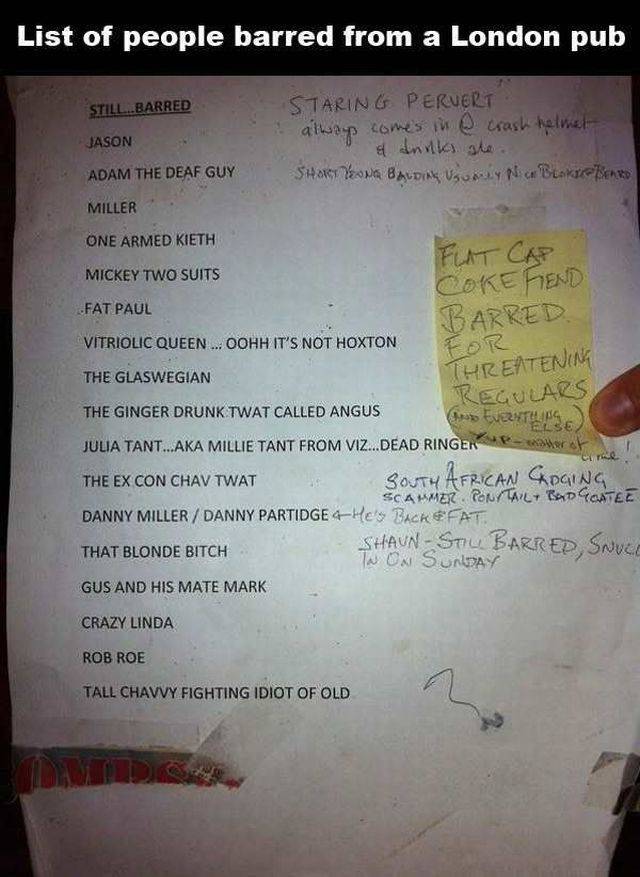 List of people barred from a London pub
STILL...BARRED
STARING PERVERT
always comes in @ crash helmet
& drinks ale.
JASON
ADAM THE DEAF GUY
SHORT YOUNG BALDING USUALLY NICE BLOKE BEARD
MILLER
ONE ARMED KIETH
MICKEY TWO SUITS
FAT PAUL
VITRIOLIC QUEEN ... OOHH IT'S NOT HOXTON
THE GLASWEGIAN
THE GINGER DRUNK TWAT CALLED ANGUS
JULIA TANT...AKA MILLIE TANT FROM VIZ...DEAD RINGER
FLAT CAP
COKE FIEND
BARRED
FOR
THREATENING
REGULARS
(AND EVERYTHING
ELSE)
UP - matter of
time!
THE EX CON CHAV TWAT
SOUTH AFRICAN CADGING
SCAMMER. PONYTAIL + BAD GOATEE
DANNY MILLER / DANNY PARTIDGE HE'S BACK & FAT.
THAT BLONDE BITCH
SHAUN - STILL BARRED,
IN ON SUNDAY
GUS AND HIS MATE MARK
CRAZY LINDA
ROB ROE
TALL CHAVVY FIGHTING IDIOT OF OLD